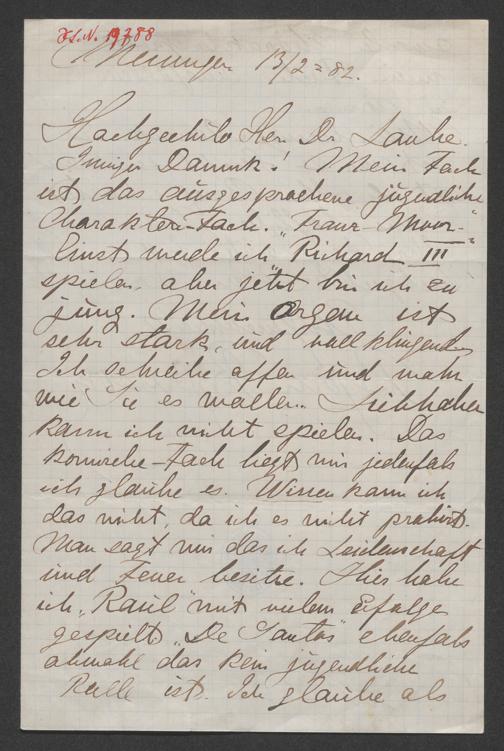 H.I.N. 19788
Meiningen 13/2=82.
Hochgeehrter Herr Dr. Laube.
Inniger Dannk! Mein Fach
ist das ausgesprochene jugendliche
Charakter-Fach. „Franz-Moor."
Einst werde ich Richard III
spielen, aber jetzt bin ich zu
jung. Mein Organ ist
sehr stark, und vollklingend,
Ich schreibe offen und wahr
wie Sie es wollen. Liebhaber
kann ich nicht spielen. Das
komische-Fach liegt mir jedenfals
ich glaube es. Wissen kann ich
das nicht, da ich es nicht probirt.
Man sagt mir das ich Leidenschaft
und Feuer besitze. Hier habe
ich „Raul" mit vielem Erfolge
gespielt „De Santos" ebenfals
obwohl das kein jugendliche
Rolle ist. Ich glaube als